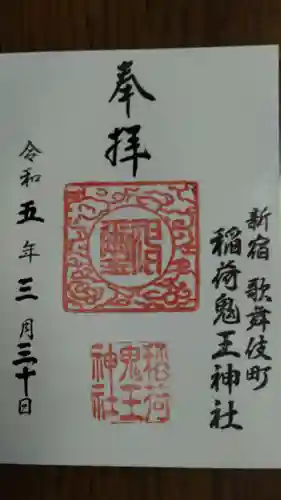 奉拝
新宿 歌舞伎町
稲荷鬼王神社
稲荷
鬼王
神社
令和五年三月三十日